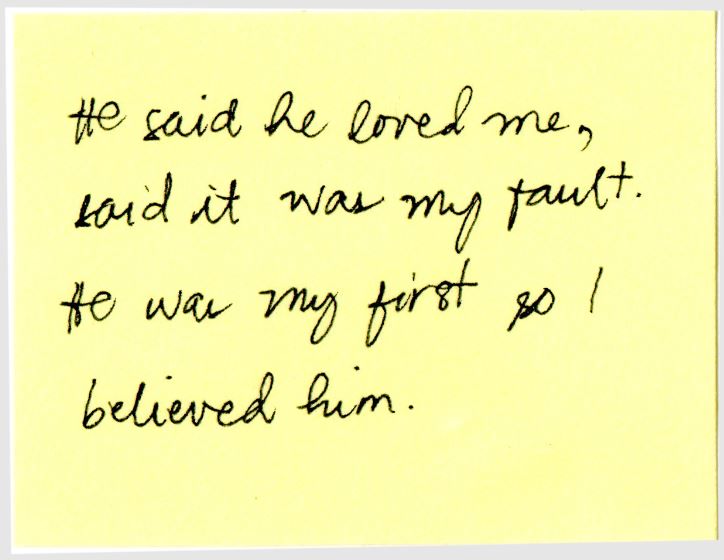 He said he loved me,
said it was my fault.
He was my first so I
believed him.